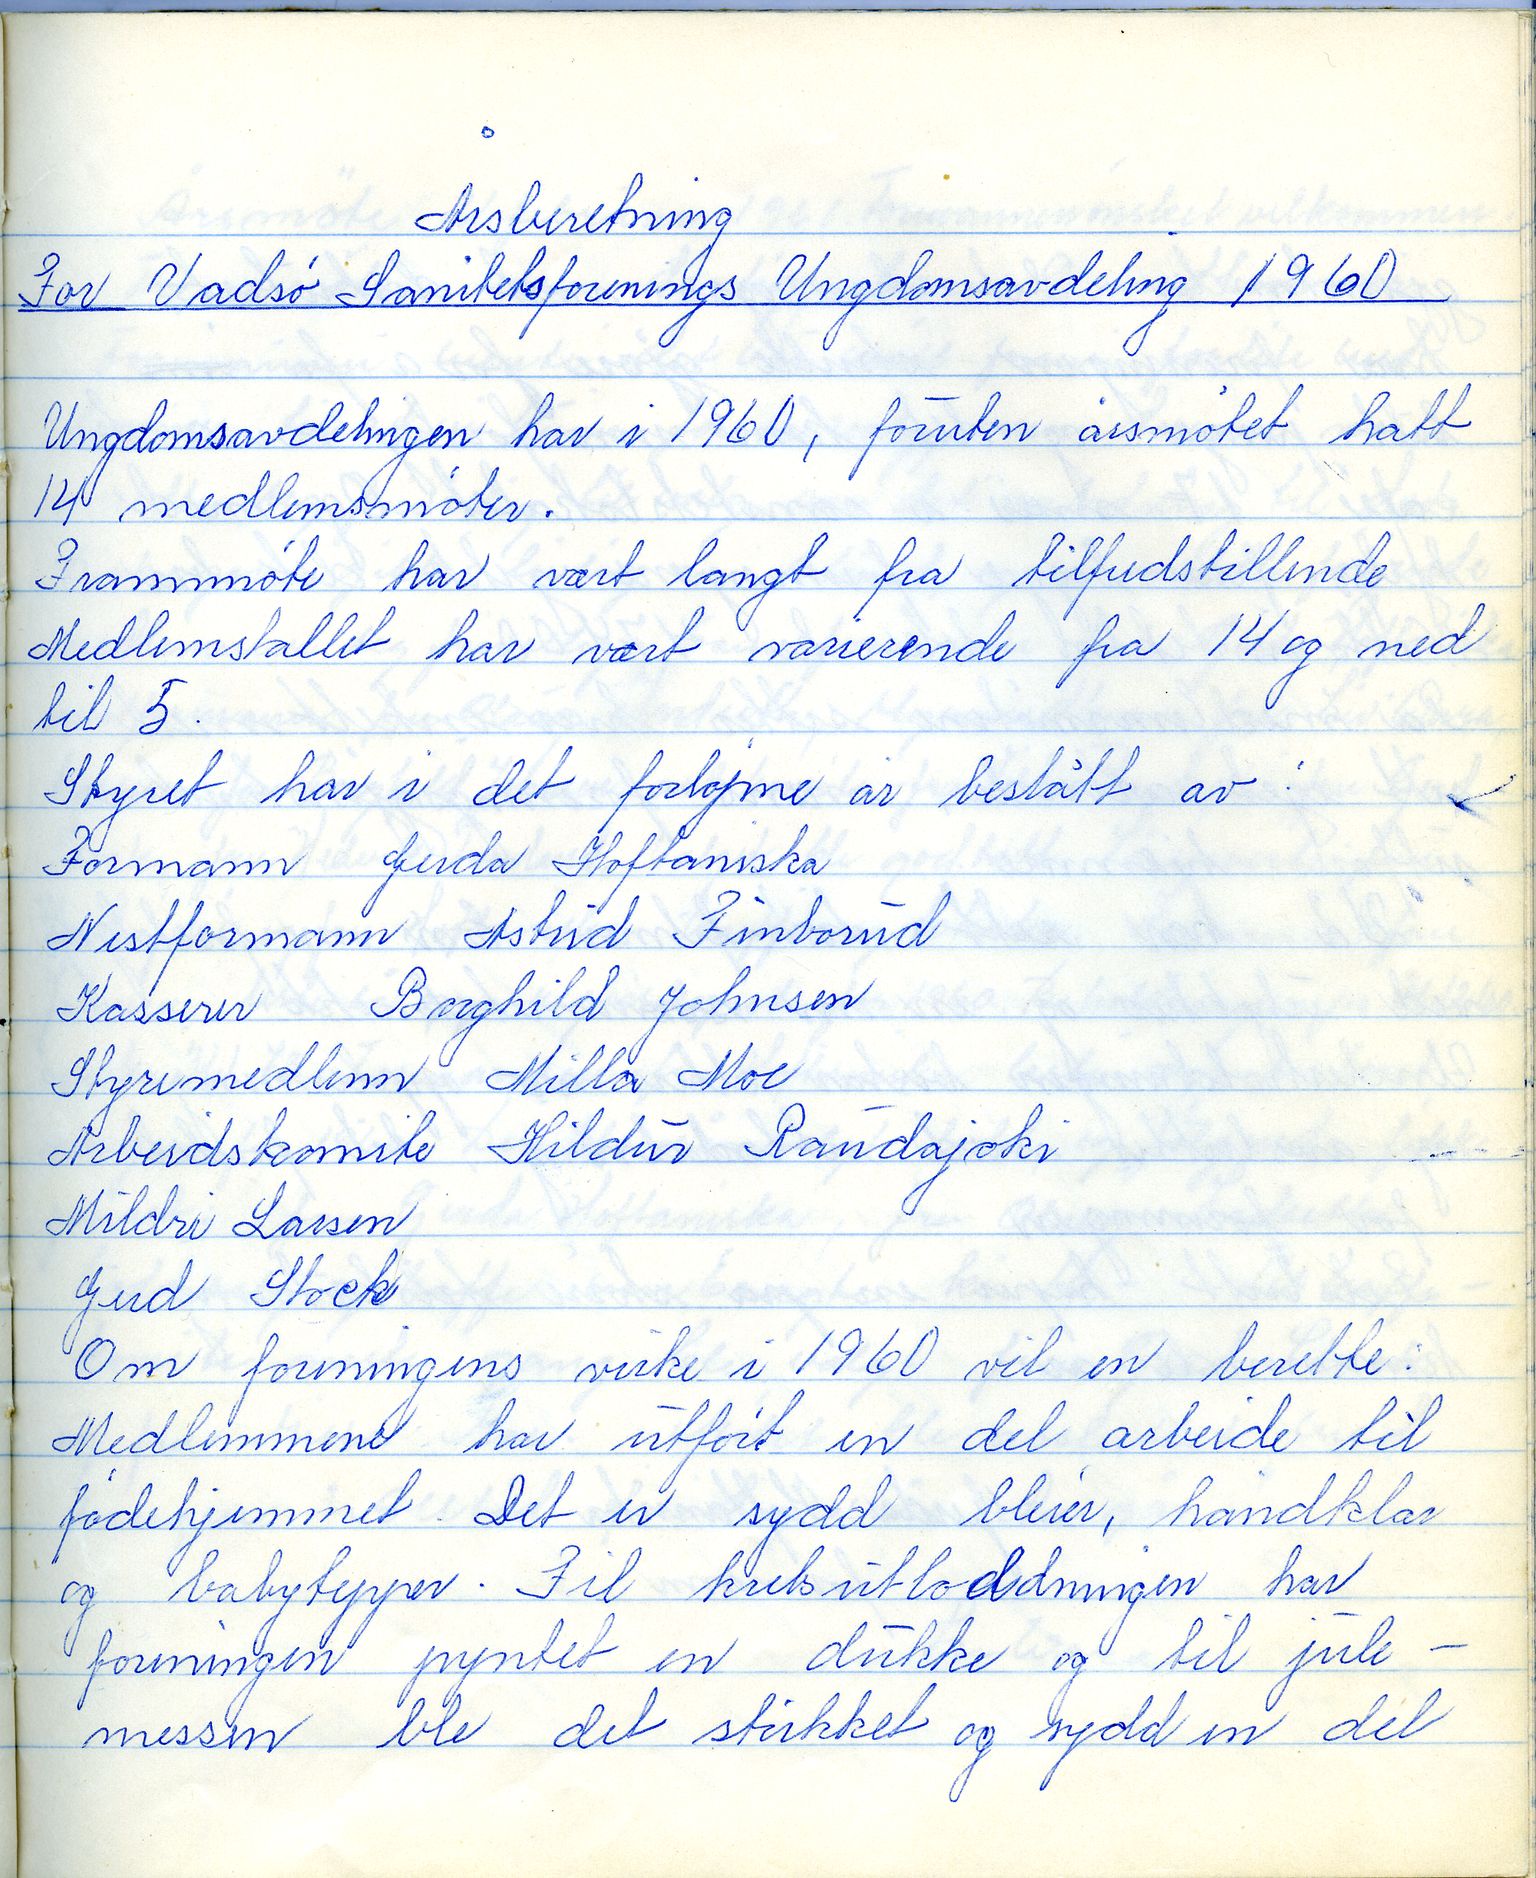 Årsberetning
For Vadsø Sanitetsforenings Ungdomsavdeling 1960
Ungdomsavdelingen har i 1960, foruten årsmøtet hatt
14 medlemsmøter.
Frammøte har vært langt fra tilfredstillende
Medlemstallet har vært varierende fra 14 og ned
til 5.
Styret har i det forløpne år bestått av :
Formann Gerda Hoftaniska
Nestformann Astrid Finborud
Kasserer Borghild Johnsen
Styremedlem Milla Moe
Arbeidskomite Hildur Raudajoki
Mildri Larsen
Gerd Stock
Om foreningens virke i 1960 vil en berette:
Medlemmene har utført en del arbeide til
fødehjemmet. Det er sydd bleier, håndklær
og babytepper. Til kretsutloddningen har
foreningen pyntet en dukke og til jule-
messen ble det strikket og sydd en del